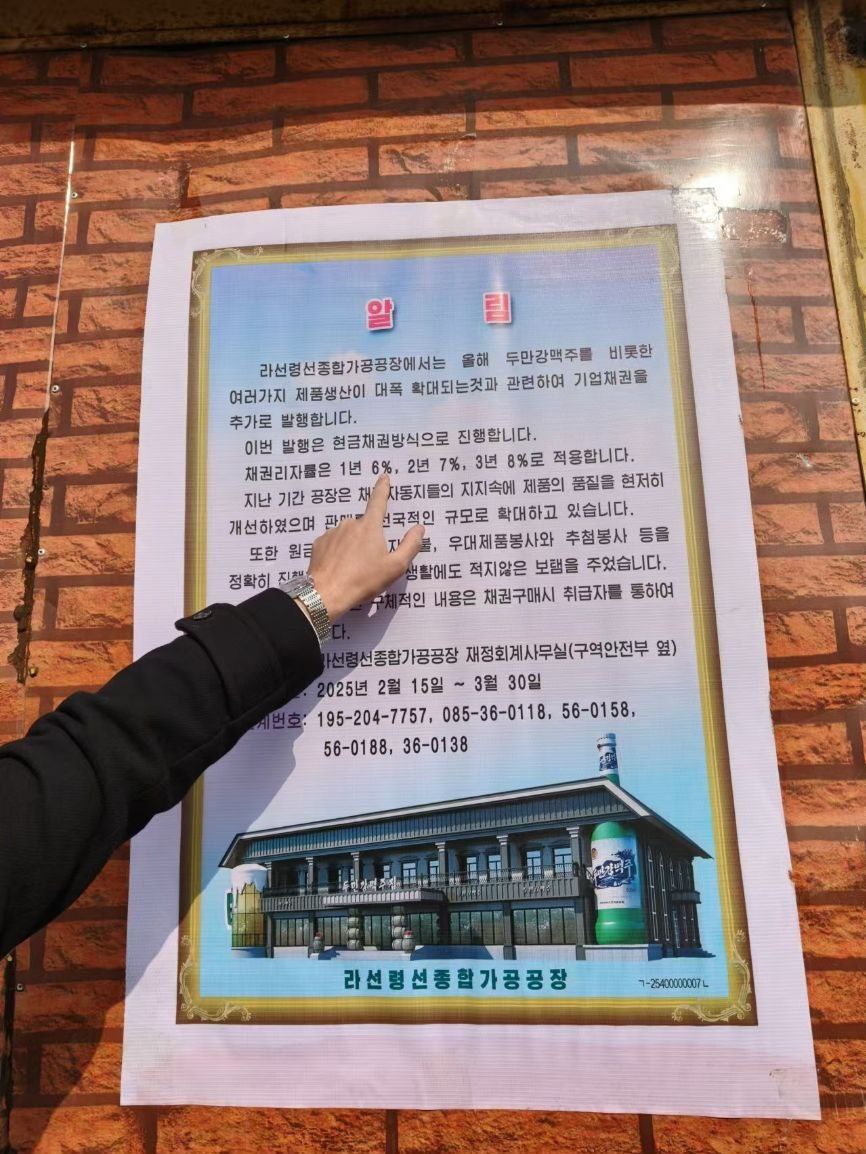 알 림
라선령선종합가공공장에서는 올해 두만강맥주를 비롯한
여러가지 제품생산이 대폭 확대되는것과 관련하여 기업채권을
추가로 발행합니다.
이번 발행은 현금채권방식으로 진행합니다.
채권리자률은 1년 6%, 2년 7%, 3년 8%로 적용합니다.
지난 기간 공장은 자동지들의 지지속에 제품의 품질을 현저히
개선하였으며 적인 규모로 확대하고 있습니다.
또한 우대제품봉사와 추첨봉사 등을
정확히 생활에도 적지않은 보탬을 주었습니다.
구체적인 내용은 채권구매시 취급자를 통하여
다.
라선령선종합가공공장 재정회계사무실(구역안전부 옆)
2025년 2월 15일 ~ 3월 30일
번호: 195-204-7757, 085-36-0118, 56-0158,
56-0188, 36-0138
두만강맥주집
두만강맥주
라선령선종합가공공장
ㄱ-25400000007ㄴ